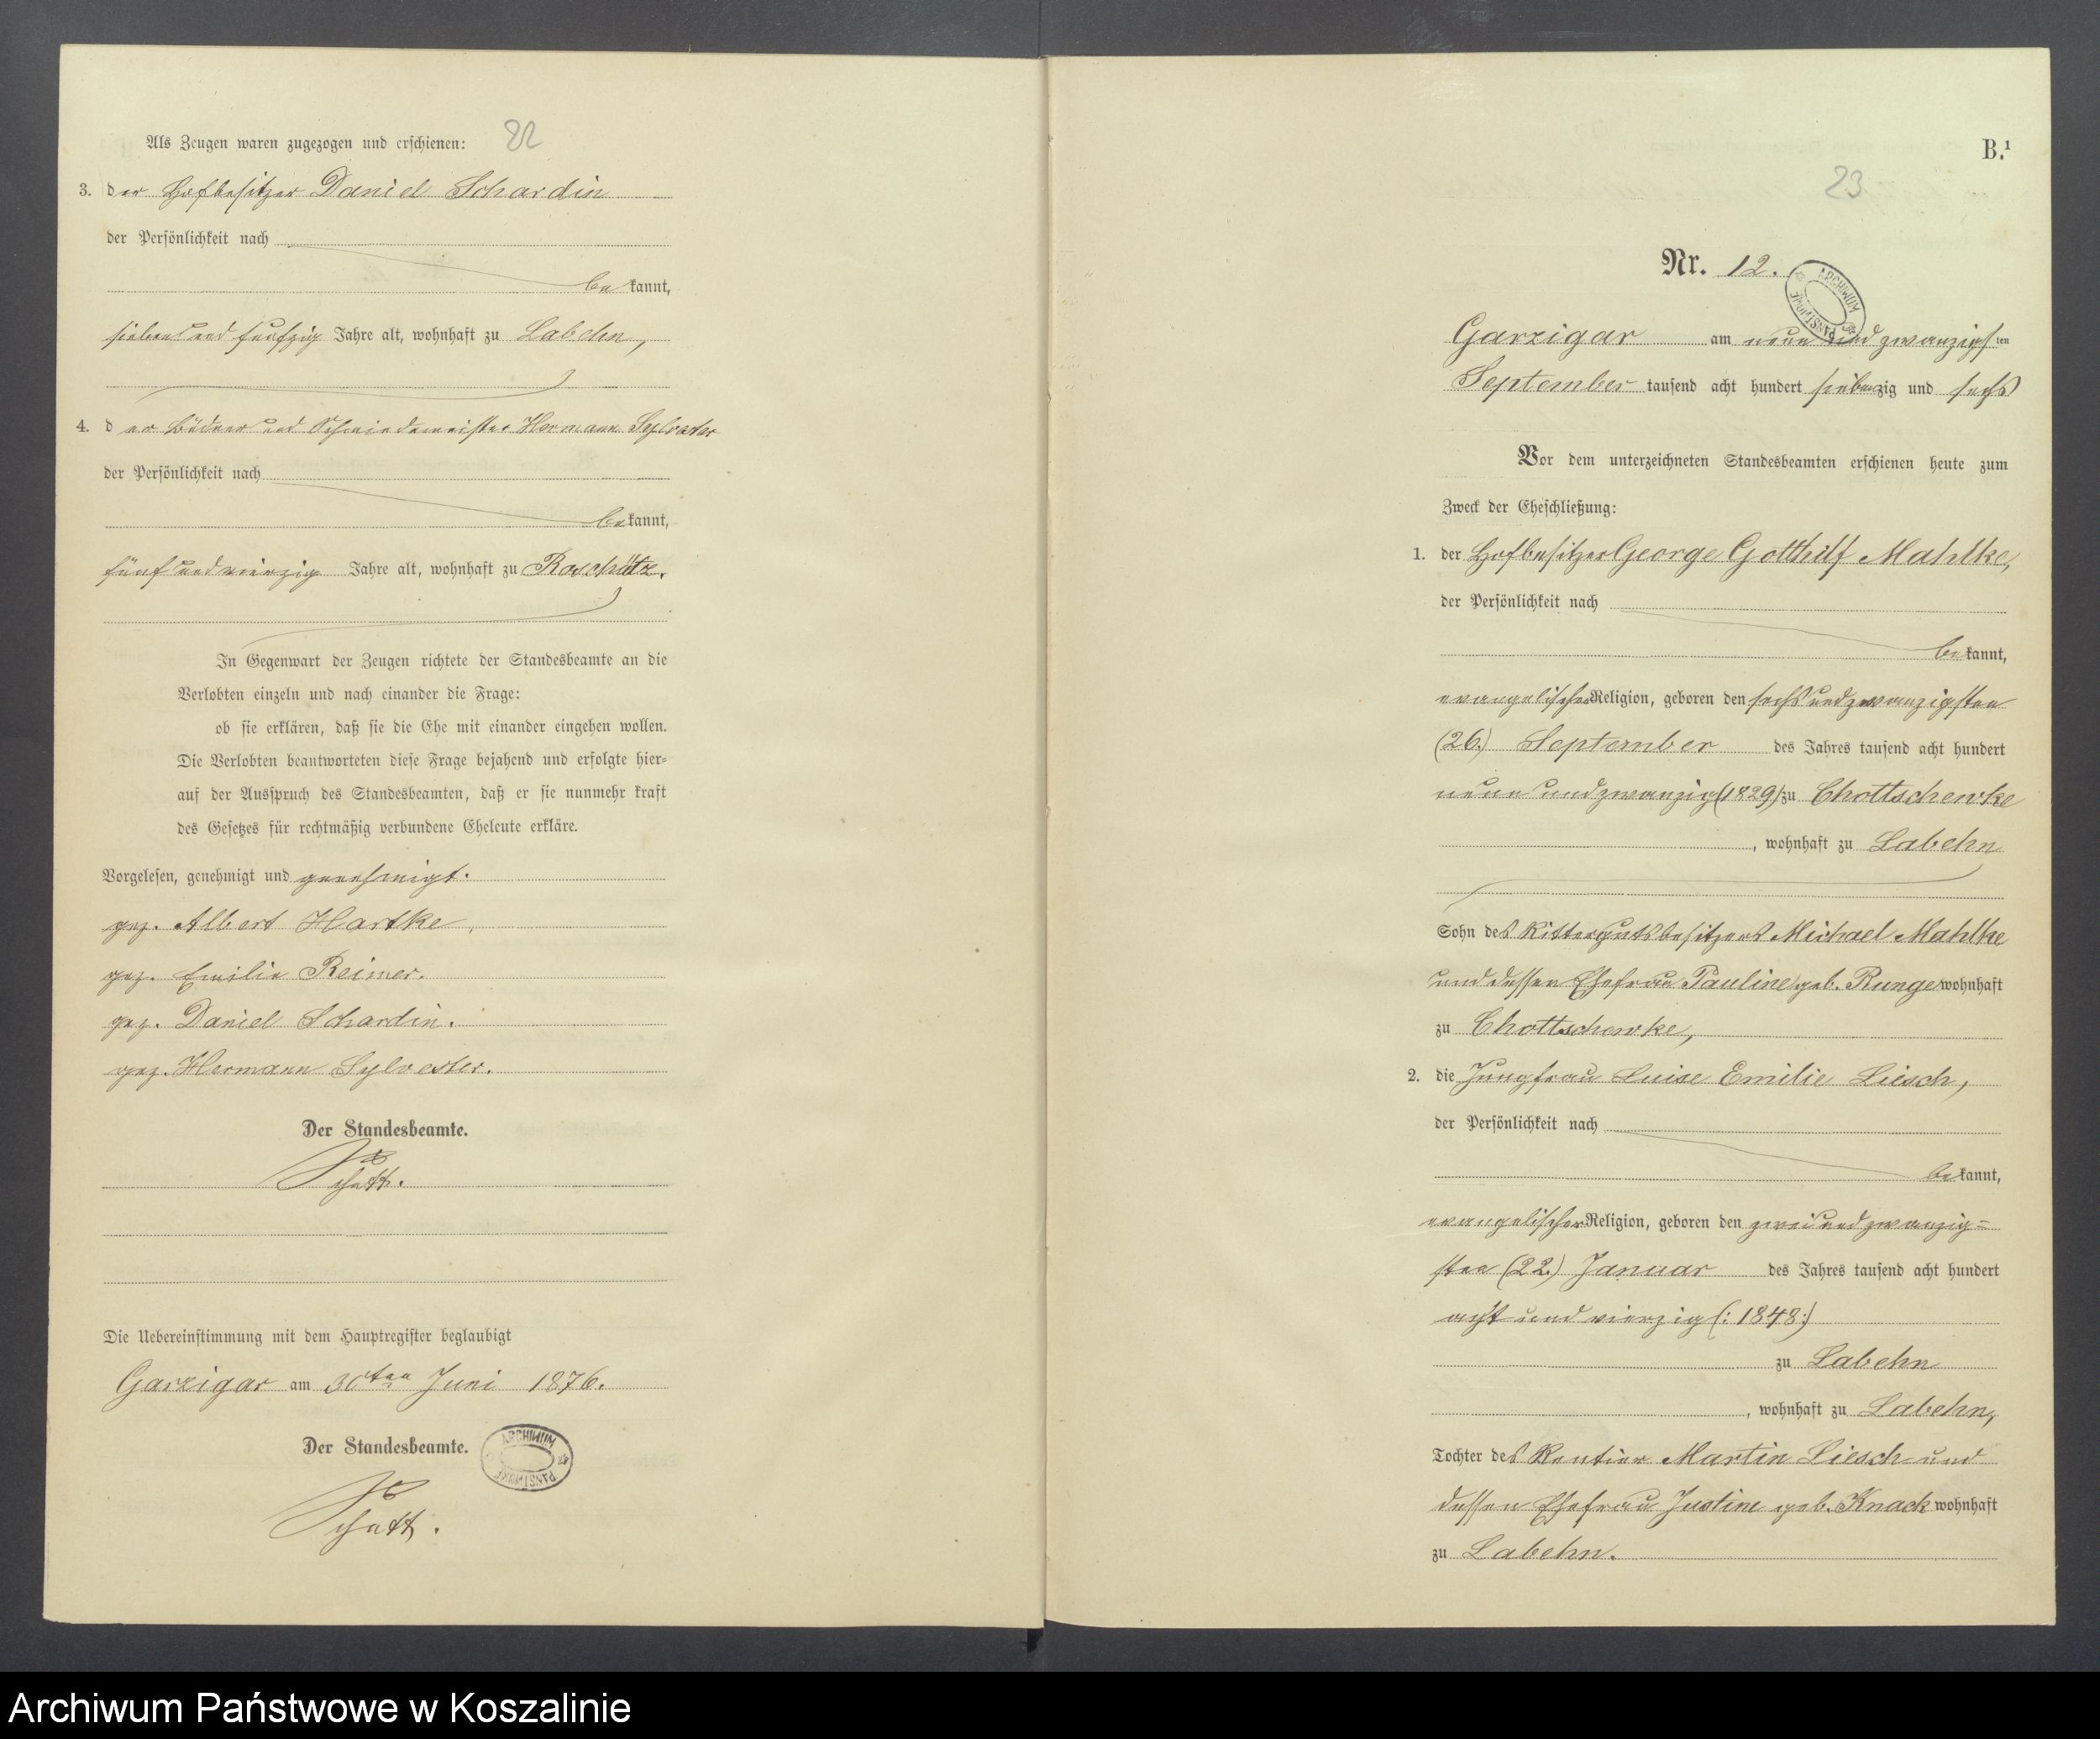 Als Zeugen waren zugezogen und erschienen:
22
3. der Hofbesitzer Daniel Schardin
der Persönlichkeit nach
bekannt,
sieben und funfzig Jahre alt, wohnhaft zu Labehn,
4. der Büdner und Schmiedemeister Hermann Sylvester
der Persönlichkeit nach
bekannt,
fünf und vierzig Jahre alt, wohnhaft zu Roschütz.
In Gegenwart der Zeugen richtete der Standesbeamte an die
Verlobten einzeln und nach einander die Frage:
ob sie erklären, daß sie die Ehe mit einander eingehen wollen.
Die Verlobten beantworteten diese Frage bejahend und erfolgte hier-
auf der Ausspruch des Standesbeamten, daß er sie nunmehr kraft
des Gesetzes für rechtmäßig verbundene Eheleute erkläre.
Vorgelesen, genehmigt und genehmigt.
gez. Albert Hartke,
gez. Emilie Reimer.
gez. Daniel Schardin.
gez. Hermann Sylvester.
Der Standesbeamte.
Schatt.
Die Uebereinstimmung mit dem Hauptregister beglaubigt
Garzigar am 30ten Juni 1876.
Der Standesbeamte.
ARCHIWUM PAŃSTWOWE
Schatt.
B.1
23
Nr. 12.
ARCHIWUM PAŃSTWOWE
Garzigar am neun und zwanzigsten
September tausend acht hundert siebenzig und sechs
Vor dem unterzeichneten Standesbeamten erschienen heute zum
Zweck der Eheschließung:
1. der Hofbesitzer George Gotthilf Mahlke,
der Persönlichkeit nach
bekannt,
evangelischer Religion, geboren den sechs und zwanzigsten
(26.) September des Jahres tausend acht hundert
neun und zwanzig (1829) zu Chottschewke
, wohnhaft zu Labehn
Sohn des Rittergutsbesitzers Michael Mahlke
und dessen Ehefrau Pauline geb. Runge wohnhaft
zu Chottschewke,
2. die Jungfrau Luise Emilie Liesch,
der Persönlichkeit nach
bekannt,
evangelischer Religion, geboren den zwei und zwanzig=
sten (22.) Januar des Jahres tausend acht hundert
acht und vierzig (: 1848:)
zu Labehn
, wohnhaft zu Labehn,
Tochter des Rentier Martin Liesch und
dessen Ehefrau Justine geb. Knack wohnhaft
zu Labehn.
Archiwum Państwowe w Koszalinie